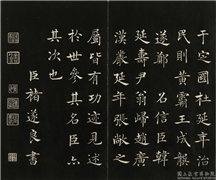 于定國杜延年治
民則黃霸王成龔
遂鄭　名信臣韓
延壽尹翁歸趙廣
漢嚴延年張敞之
屬皆有功迹見述
於世參其名臣亦
其次也
臣褚遂良書